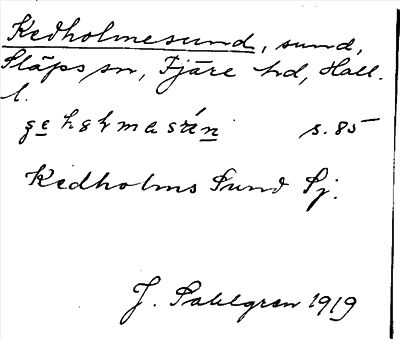 Kedholmesund, sund,
Släps sn, Fjäre hd, Hall.
l.
s. 85
Kedholms Sund Sj.
J. Sahlgren 1919